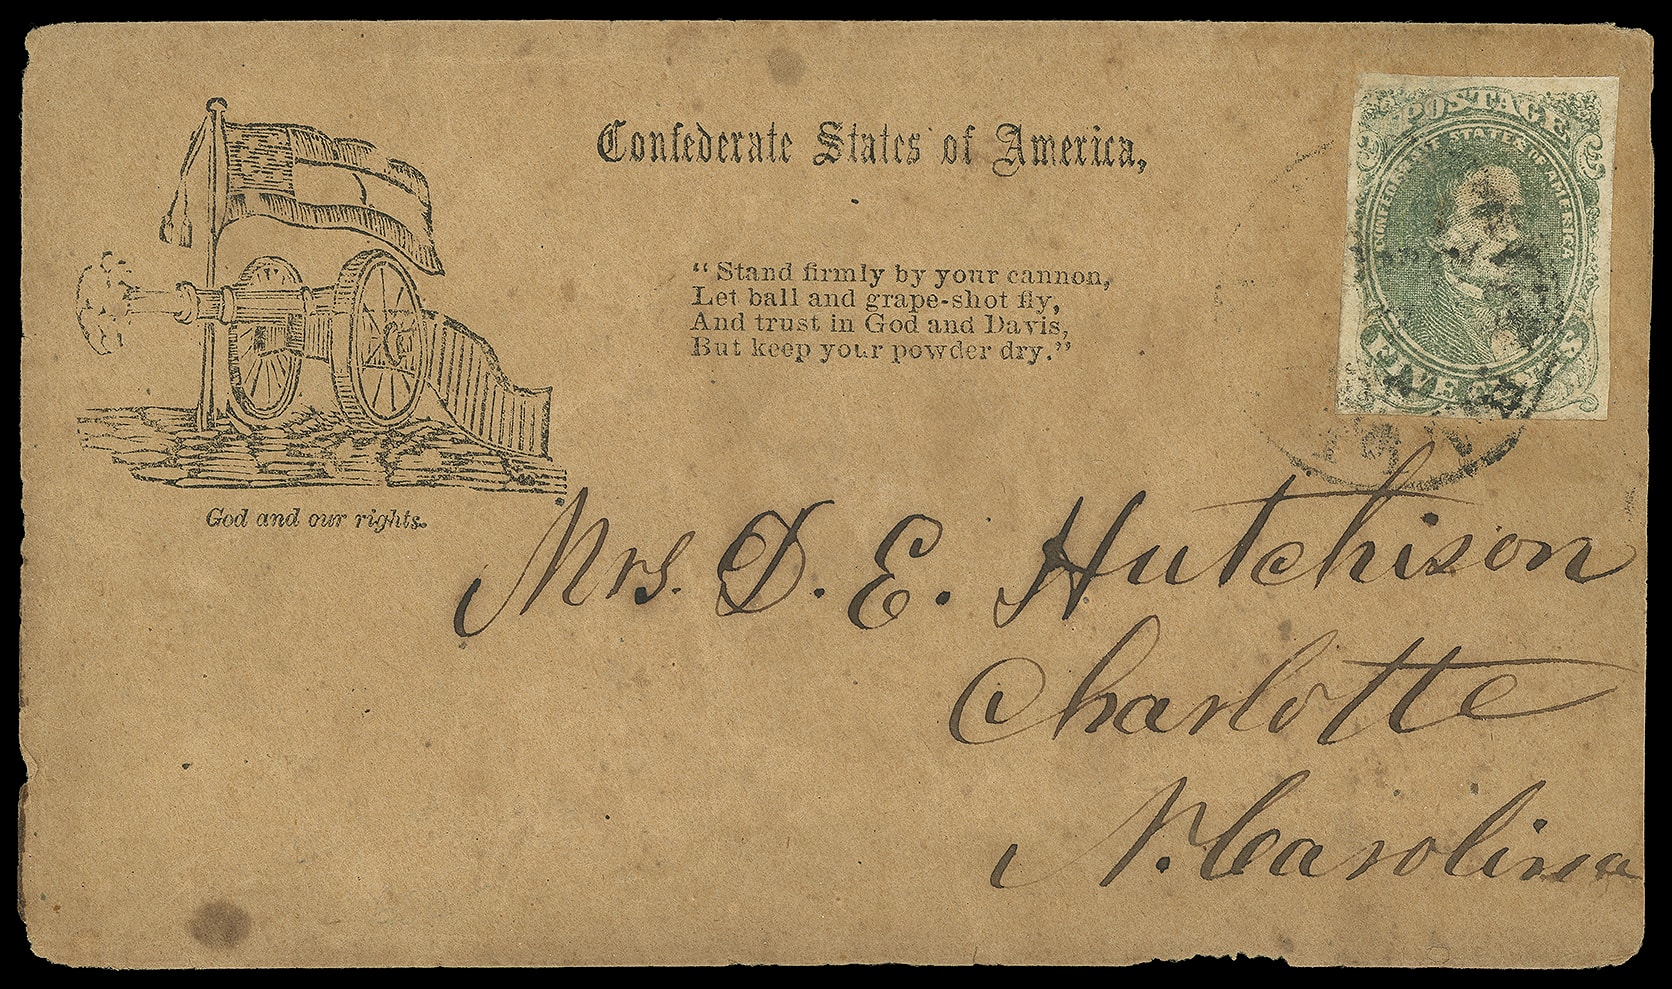 Confederate States of America,
"Stand firmly by your cannon,
Let ball and grape-shot fly,
And trust in God and Davis,
But keep your powder dry."
God and our rights.
POSTAGE
CONFEDERATE STATES OF AMERICA
FIVE
Mrs. D. E. Hutchison
Charlotte
N. Carolina